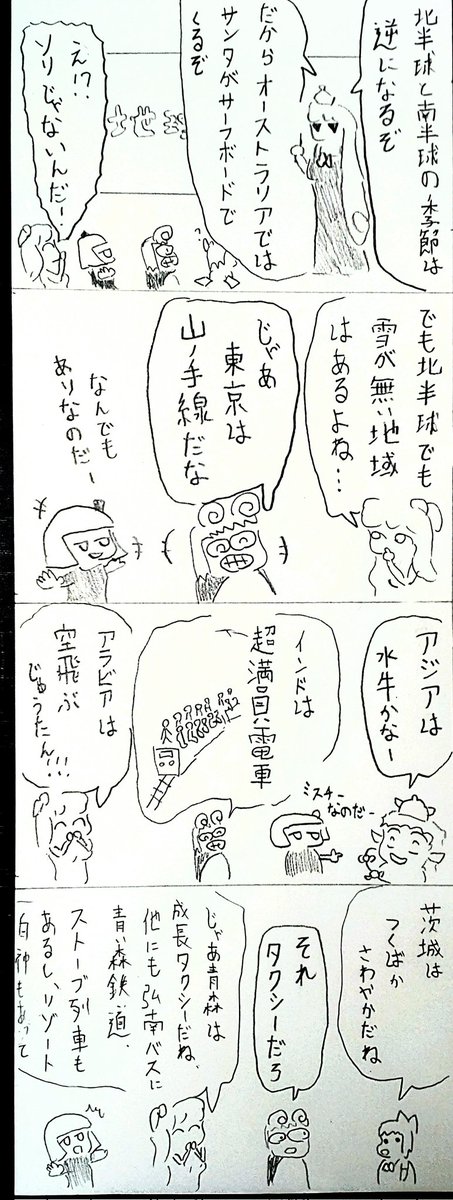 北半球と南半球の季節は
逆になるぞ
だからオーストラリアでは
サンタがサーフボードで
くるぞ
地理
え!?
ソリじゃないんだー!
でも北半球でも
雪が無い地域
はあるよね…
じゃあ
東京は
山ノ手線だな
なんでも
ありなのだー
アジアは
水牛かなー
ミスチー
なのだー
インドは
超満員電車
アラビアは
空飛ぶ
じゅうたん!!!
茨城は
つくばか
さわやかだね
それ
タクシーだろ
じゃあ青森は
成長タクシーだね、
他にも弘南バスに
青い森鉄道、
ストーブ列車も
あるし、リゾート
白神もあって